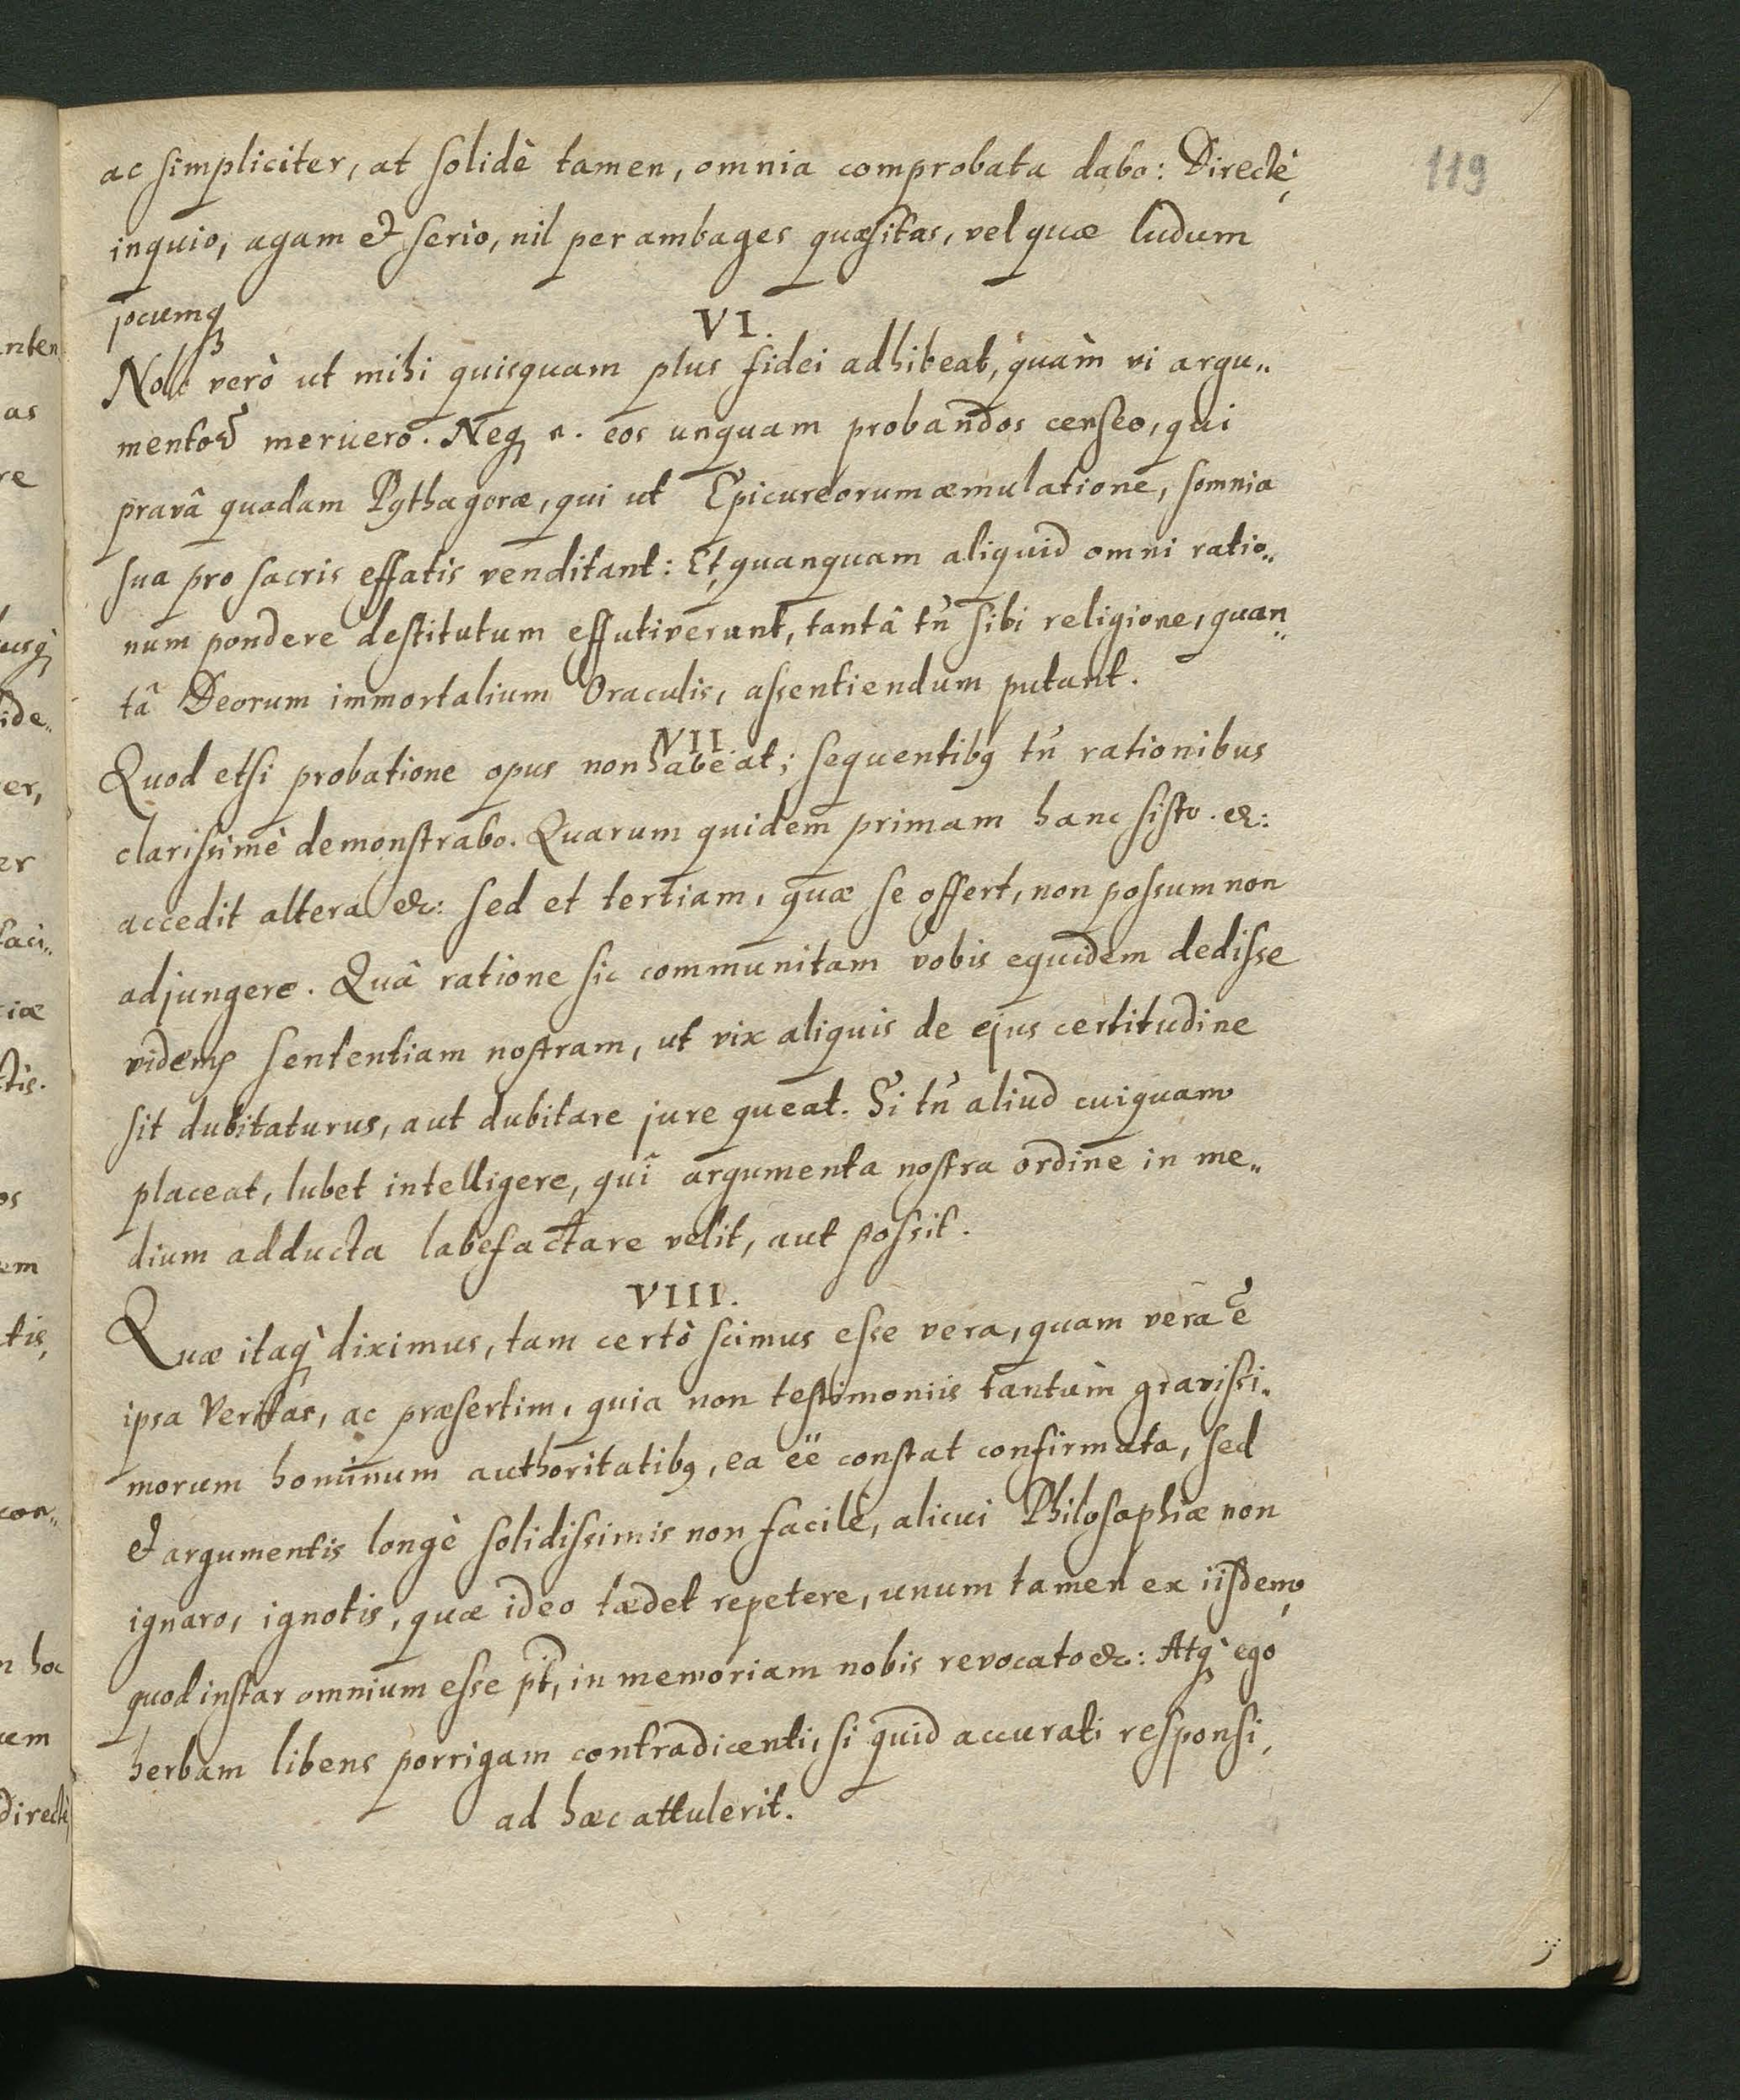 119
ac simpliciter, at solidè tamen, omnia comprobata dabo: Directè,
inquio, agam et seriò, nil per ambages quæsitas, vel quæ ludum
jocumq́ꝫ
VI.
Nole verò ut mihi quisquam plus fidei adhibeat, quàm vi argu„
mentoꝝ meruero. Neq n. eos unquam probandos censeo, qui
pravâ quadam Pythagoræ, qui ut Epicureorum æmulatione, somnia
sua pro sacris effatis venditant: Et, quanquam aliquid omni ratio„
num pondere destitutum effutiverunt, tantâ tñ sibi religione, quan„
tâ Deorum immortalium Oraculis, assentiendum putant.
VII
Quod etsi probatione opus non habeat; sequentibꝫ tñ rationibus
clarissimè demonstrabo. Quarum quidem primam hanc sisto. &:
accedit altera &c: sed et tertiam, quæ se offert, non possum non
adjungere. Quâ ratione sic communitam vobis equidem dedisse
videmꝰ sententiam nostram, ut vix aliquis de ejus certitudine
sit dubitaturus, aut dubitare jure queat. Si tñ aliud cuiquam
placeat, lubet intelligere, quî argumenta nostra ordine in me„
dium adducta labefactare velit, aut possit.
VIII.
Quæ itaq̀ diximus, tam certò scimus esse vera, quam vera ẽ
ipsa Veritas, ac præsertim, quia non testimoniis tantùm gravissi„
morum hominum authoritatibꝫ, ea ëë constat confirmata, sed
et argumentis longè solidissimis non facilè, alicui Philosophiæ non
ignaro, ignotis, quæ ideo tædet repetere, unum tamen ex iisdem,
quod instar omnium esse pt̃, in memoriam nobis revocato &c: Atq̀ ego
herbam libens porrigam contradicenti, si quid accurati responsi,
ad hæc attulerit.